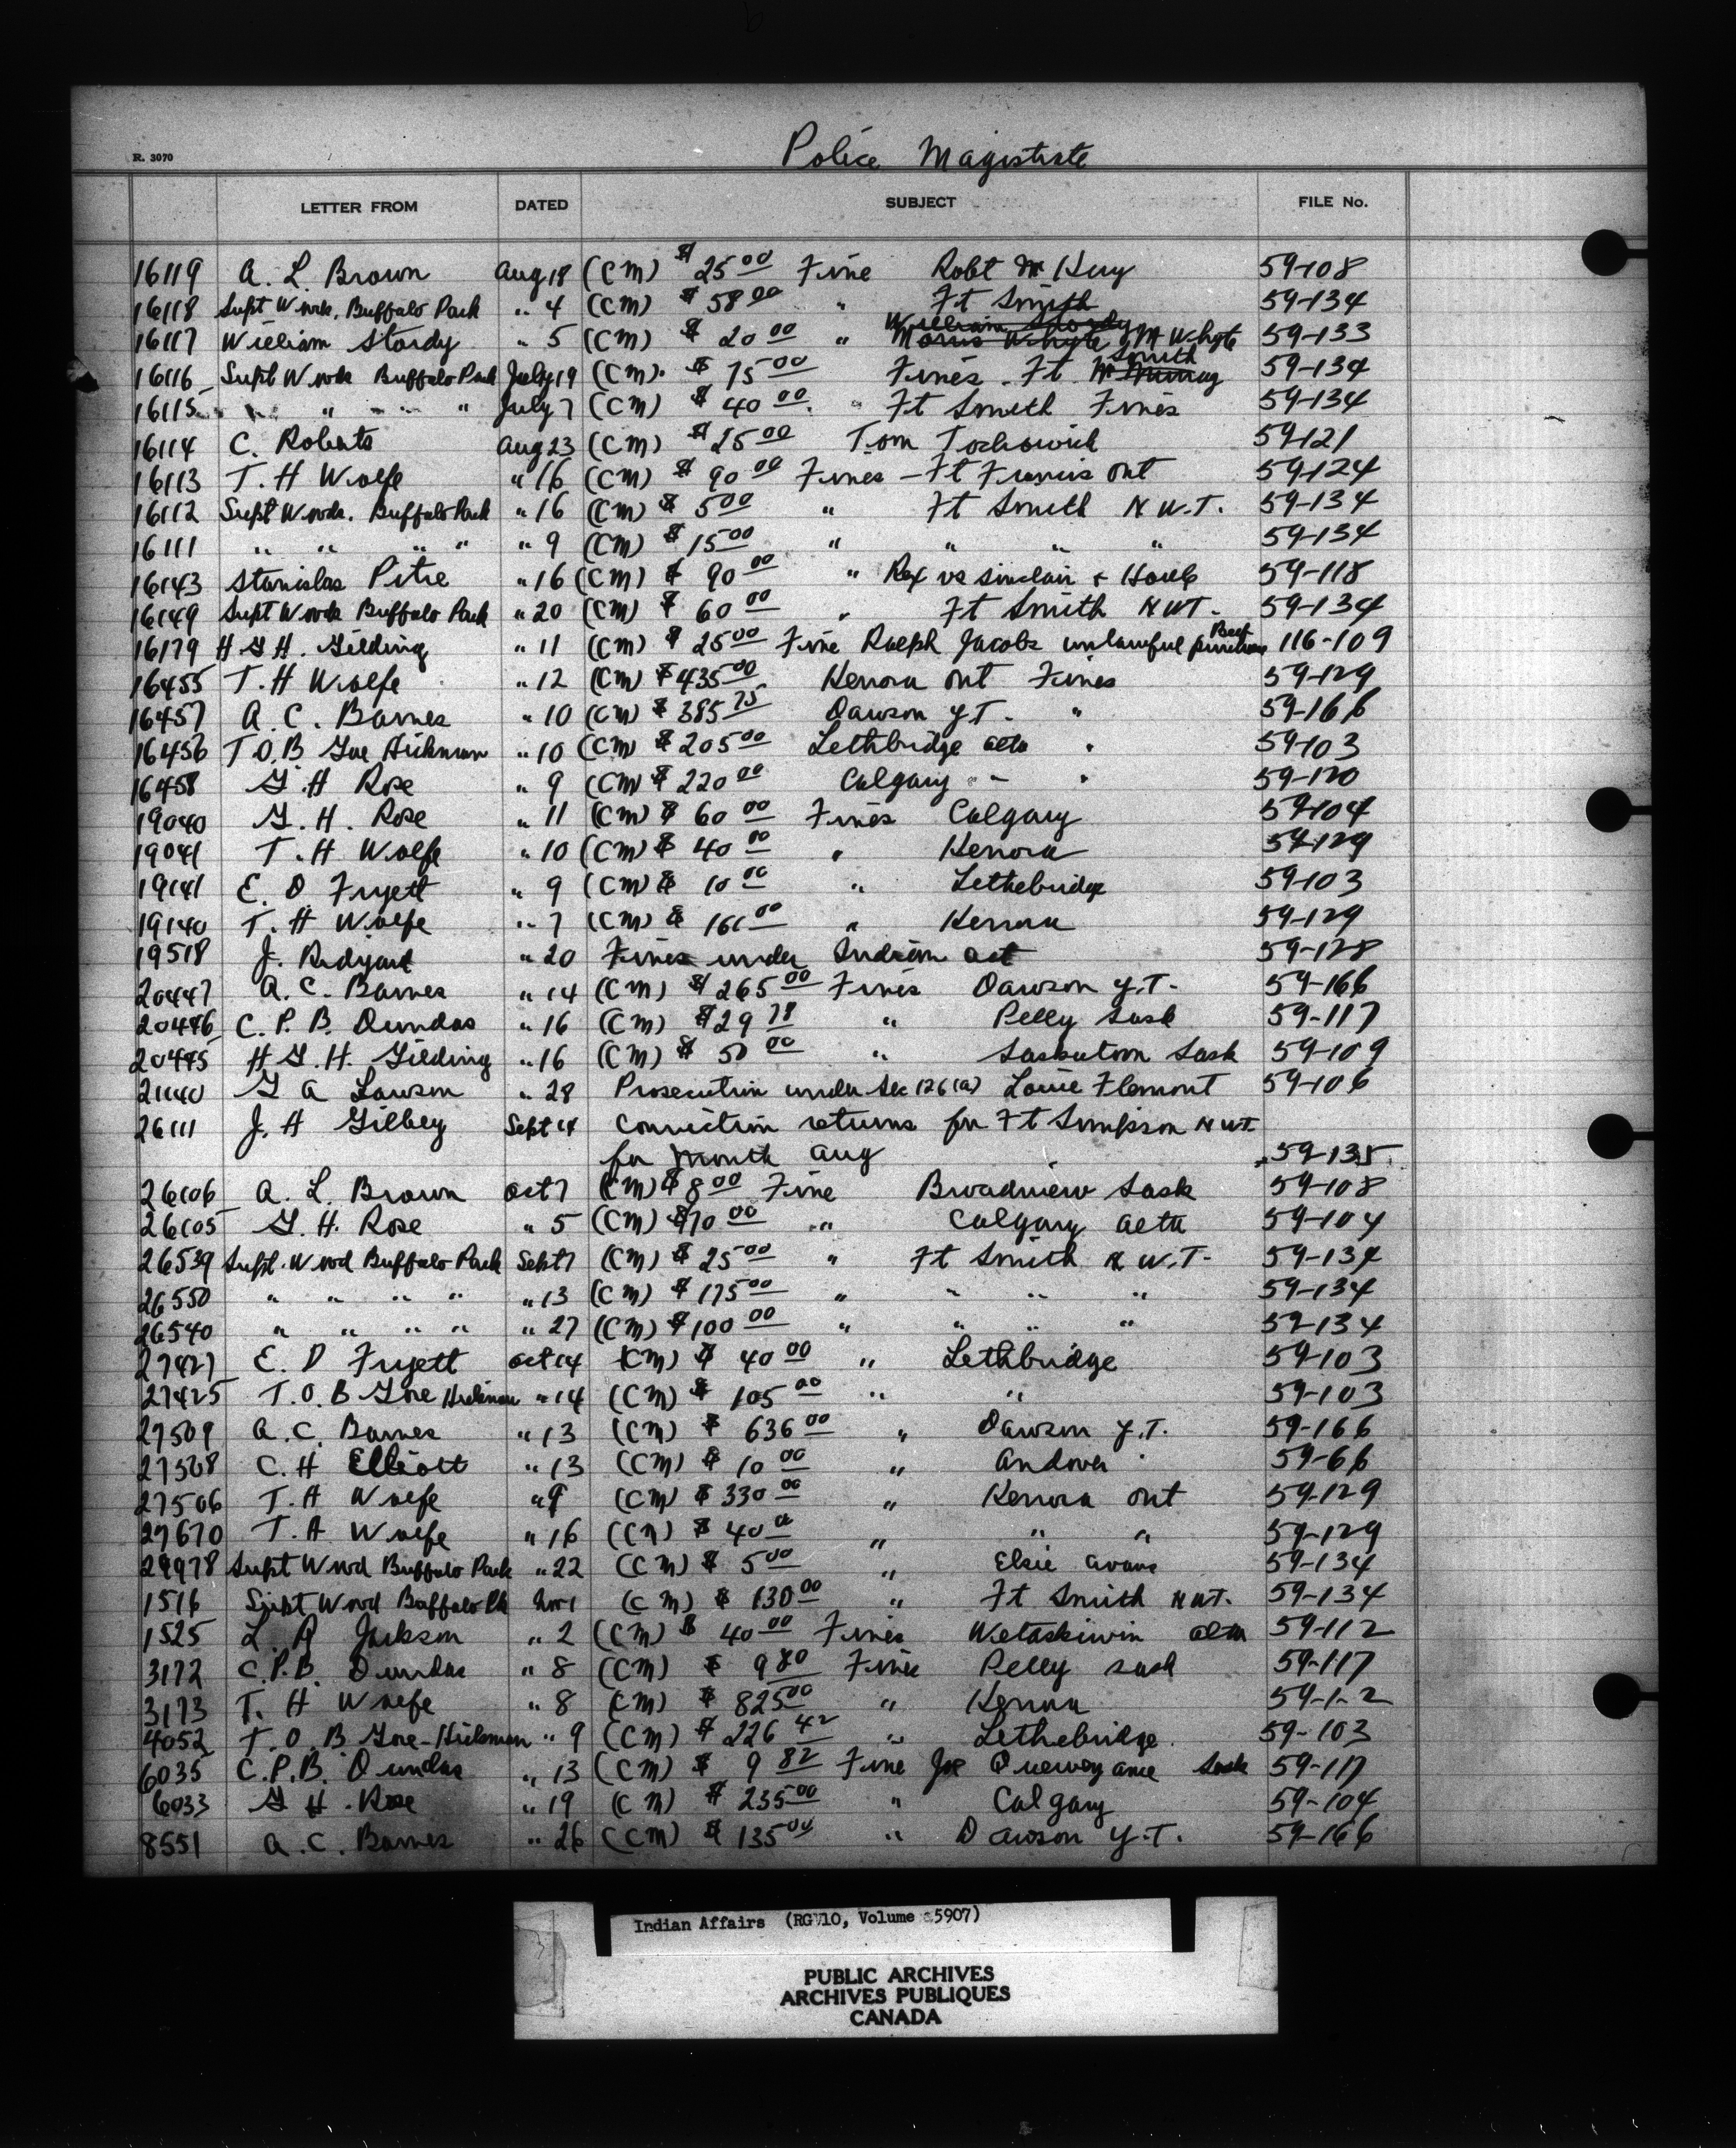 Police Magistrate
R. 3070
LETTER FROM DATED SUBJECT FILE No.
16119 A. L. Brown Aug 18 (CM) $25.00 Fine Robt Mc
16118 Supt Wood. Buffalo Park " 4 (CM) $58.00 " Ft Smith 59-134
16117 William Stordy " 5 (CM) $20.00 " William Stordy Morris Whyte M Whyte 59-133
16116 Supt Wood Buffalo Park July 19 (CM). $75.00 Fines - Ft McMurray Smith 59-134
16115 " " " " July 7 (CM) $40.00. Ft Smith Fines 59-134
16114 C. Roberts Aug 23 (CM) $25.00 Tom 59-121
16113 T. H Wolfe " 16 (CM) $90.00 Fines - Ft Francis Ont 59-124
16112 Supt Wood. Buffalo Park " 16 (CM) $5.00 " Ft Smith N.W.T. 59-134
16111 " " " " " 9 (CM) $15.00 " " " " 59-134
16143 Stanislas Pitre " 16 (CM) $90.00 " Rex vs Sinclair + 59-118
16149 Supt Wood Buffalo Park " 20 (CM) $60.00 " Ft Smith NWT. 59-134
16179 H G H. Gilding " 11 (CM) $25.00 Fine Ralph Jacobs unlawful Beef purchase 116-109
16455 T. H Wolfe " 12 (CM) $435.00 Kenora Ont Fines 59-129
16457 A. C. Barnes " 10 (CM) $385.75 Dawson Y.T. " 59-166
16456 T.O.B Gore Hickman " 10 (CM) $205.00 Lethbridge Alta " 59-103
16458 G. H Rose " 9 (CM) $220.00 Calgary - " 59-120
19040 G. H. Rose " 11 (CM) $60.00 Fines Calgary 59-104
19041 T. H Wolfe " 10 (CM) $40.00 " Kenora 59-129
19141 E. D Fryett " 9 (CM) $10.00 " Lethebridge 59-103
19140 T. H Wolfe " 7 (CM) $161.00 " Kenora 59-129
19518 J. " 20 Fines under Indian Act 59-128
20447 A. C. Barnes " 14 (CM) $265.00 Fines Dawson Y.T. 59-166
20446 C. P. B. Dundas " 16 (CM) $29.78 " Pelly Sask 59-117
20445 H. G. H. Gilding " 16 (CM) $50.00 " Saskatoon Sask 59-109
21140 G A Lawson " 28 Prosecution under Sec 126(a) Louie Flemont 59-106
26111 J. H Gilbey Sept 14 Conviction returns for Ft Simpson NWT.
for Month Aug 59-135
26106 A. L. Brown Oct 7 (CM) $8.00 Fine Broadview Sask 59-108
26105 G. H. Rose " 5 (CM) $70.00 " Calgary Alta 59-104
26539 Supt. Wood Buffalo Park Sept 7 (CM) $25.00 " Ft Smith N.W.T. 59-134
26550 " " " " " 13 (CM) $175.00 " " " " 59-134
26540 " " " " " 27 (CM) $100.00 " " " " 59-134
27427 E. D Fryett Oct 14 (CM) $40.00 " Lethbridge 59-103
27425 T. O. B Gore Hickman " 14 (CM) $105.00 " " 59-103
27509 A. C. Barnes " 13 (CM) $636.00 " Dawson Y.T. 59-166
27508 C. H Elliott " 13 (CM) $10.00 " Andover 59-66
27506 T. H Wolfe " 9 (CM) $330.00 " Kenora Ont 59-129
27670 T. H Wolfe " 16 (CM) $40.00 " " " 59-129
29978 Supt Wood Buffalo Park " 22 (CM) $5.00 " Elsie Avans 59-134
1516 Supt Wood Buffalo Pk Nov 1 (CM) $130.00 " Ft Smith NWT. 59-134
1525 L. A Jackson " 2 (CM) $40.00 Fines Wetaskiwin Alta 59-112
3172 C.P.B. Dundas " 8 (CM) $9.80 Fines Pelly Sask 59-117
3173 T. H Wolfe " 8 (CM) $825.00 " Kenora 59-1-2
4052 T. O. B Gore-Hickman " 9 (CM) $226.42 " Lethebridge. 59-103
6035 C.P.B. Dundas " 13 (CM) $9.82 Fine Joe Sask 59-117
6033 G H. Rose " 19 (CM) $235.00 " Calgary 59-104
8551 A. C. Barnes " 26 (CM) $135.00 " Dawson Y.T. 59-166
Indian Affairs (RG 10, Volume 5907)
PUBLIC ARCHIVES
ARCHIVES PUBLIQUES
CANADA